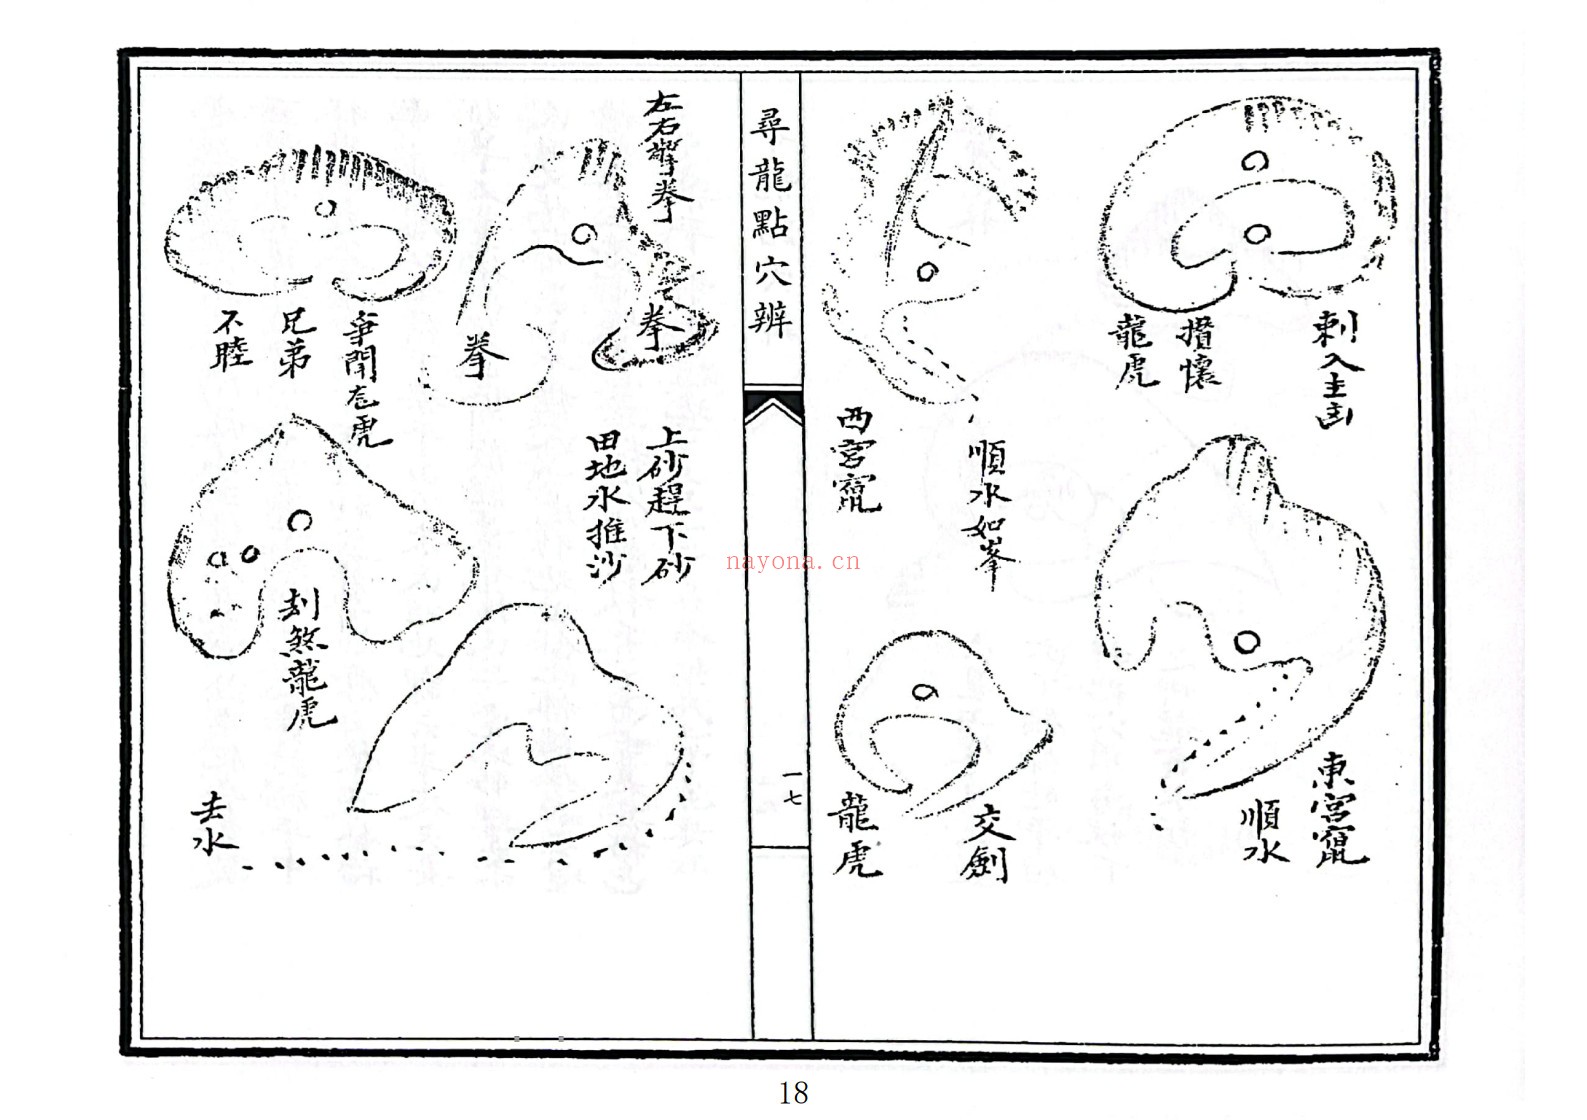 刺入主
攢懷
龍虎
東宮竄
順水
順水如峯
西宮竄
交劍
龍虎
尋龍點穴辨
一七
nayona.cn
左右擎拳
拳
拳
上砂趕下砂
田地水推沙
爭鬪龙虎
兄弟
不睦
刦煞龍虎
去水
18